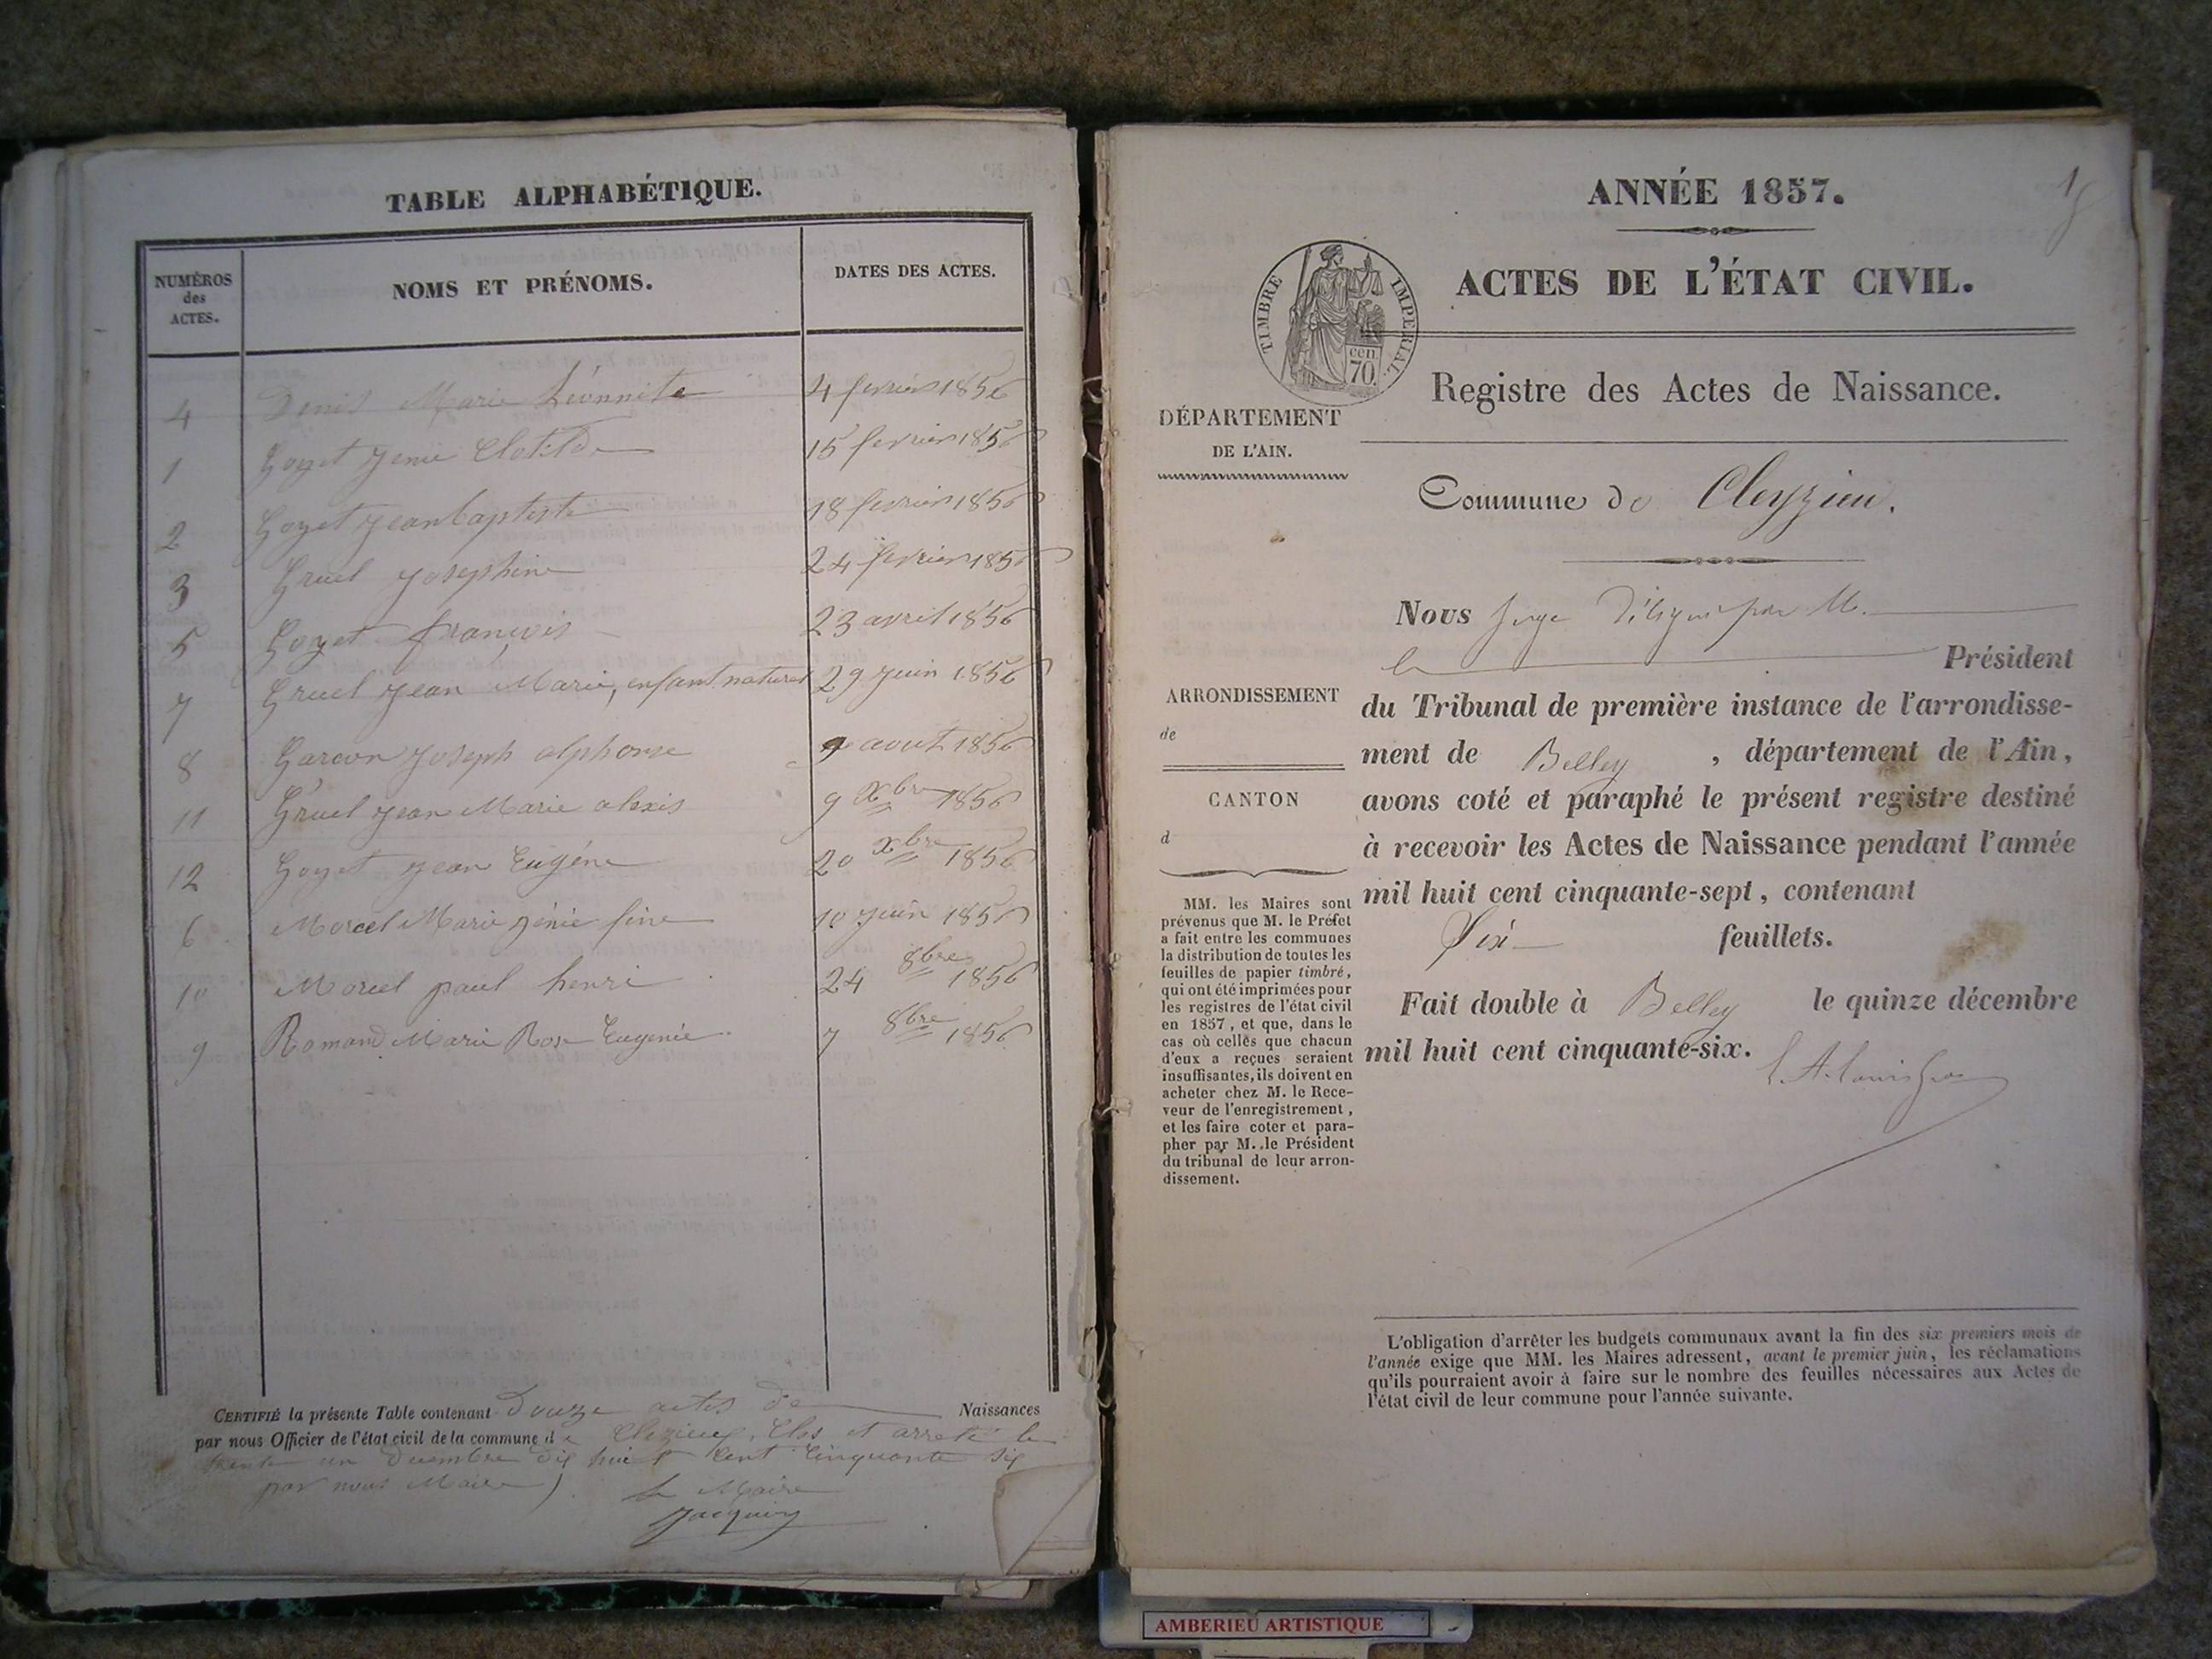 TABLE ALPHABÉTIQUE.
NUMÉROS des ACTES.
NOMS ET PRÉNOMS.
DATES DES ACTES.
4 Denis Marie Léonnite 4 fevrier 1856
1 Goyet Jenie Clotilde 15 fevrier 1856
2 Goyet Jean baptiste 18 fevrier 1856
3 Gruel Josephine 24 fevrier 1856
5 Goyet françois 23 avril 1856
7 Gruel Jean Marie, enfant naturel 29 Juin 1856
8 Garcon Joseph alphonse 9 aout 1856
11 Gruel Jean Marie alexis 9 Xbre 1856
12 Goyet Jean Eugéne 20 xbre 1856
6 Morcel Marie génie fine 10 Juin 1856
10 Morcel paul henri 24 8bre 1856
9 Romand Marie Rose Eugenie 7 8bre 1856
CERTIFIÉ la présente Table contenant Douze actes de Naissances
par nous Officier de l'état civil de la commune de Cleyzieu, Clos et arreté le
trente un Decembre dix huit Cent Cinquante six
par nous Maire
le Maire
Jacquin
ANNÉE 1857.
ACTES DE L'ÉTAT CIVIL.
TIMBRE IMPERIAL
cen. 70.
Registre des Actes de Naissance.
DÉPARTEMENT
DE L'AIN.
Commune de Cleyzieu.
Nous Juge Délégué par M.
le Président
ARRONDISSEMENT
de
du Tribunal de première instance de l'arrondisse-
ment de Belley, département de l'Ain,
CANTON
d
avons coté et paraphé le présent registre destiné
à recevoir les Actes de Naissance pendant l'année
mil huit cent cinquante-sept, contenant
Six feuillets.
Fait double à Belley le quinze décembre
mil huit cent cinquante-six.
MM. les Maires sont
prévenus que M. le Préfet
a fait entre les communes
la distribution de toutes les
feuilles de papier timbré,
qui ont été imprimées pour
les registres de l'état civil
en 1857, et que, dans le
cas où celles que chacun
d'eux a reçues seraient
insuffisantes, ils doivent en
acheter chez M. le Rece-
veur de l'enregistrement,
et les faire coter et para-
pher par M. le Président
du tribunal de leur arron-
dissement.
L'obligation d'arrêter les budgets communaux avant la fin des six premiers mois de
l'année exige que MM. les Maires adressent, avant le premier juin, les réclamations
qu'ils pourraient avoir à faire sur le nombre des feuilles nécessaires aux Actes de
l'état civil de leur commune pour l'année suivante.
AMBERIEU ARTISTIQUE